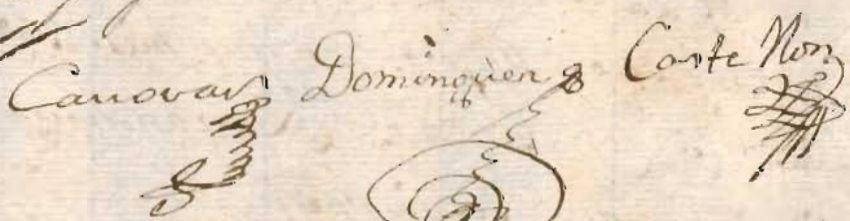 Canovas Dominguez Conte Mon